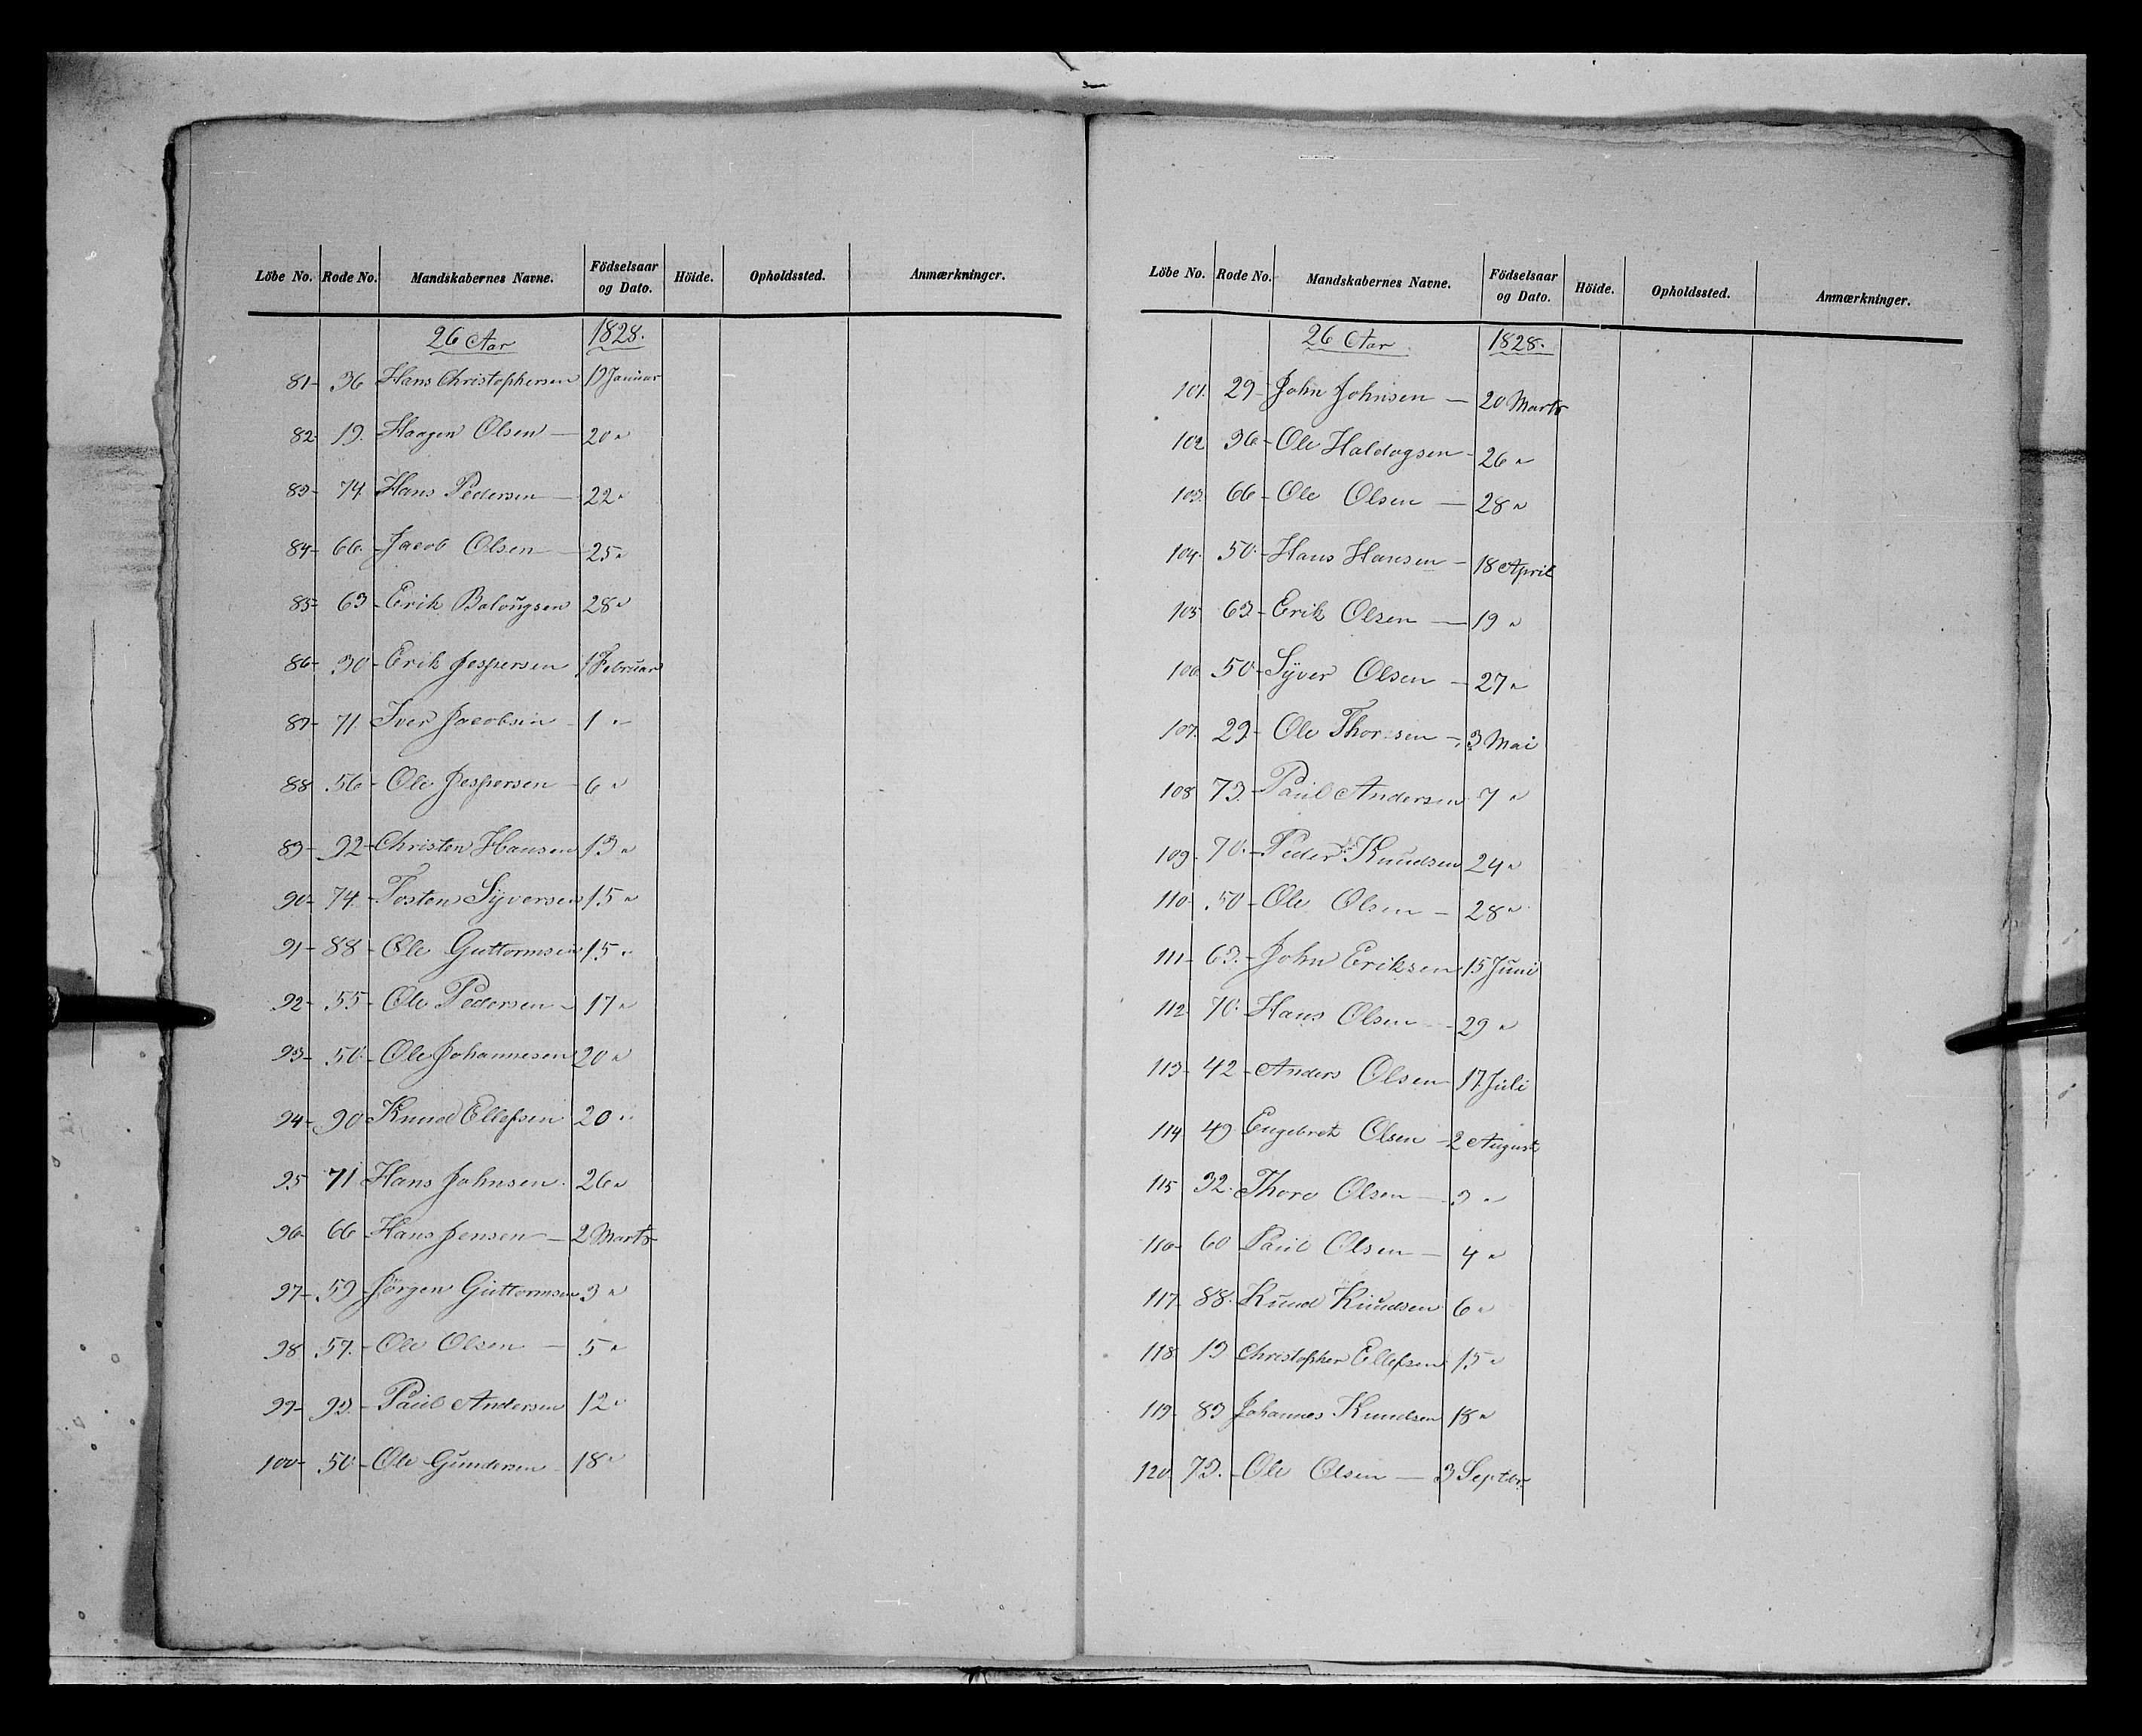 Löbe No. Rode No. Mandskabernes Navne. Födselsaar og Dato. Höide. Opholdssted. Anmærkninger.
26 Aar 1828.
81- 36 Hans Christophersen 19 Januar
82- 19. Haagen Olsen — 20 "
83- 74. Hans Pedersen — 22 "
84- 66. Jacob Olsen — 25 "
85- 63- Erik Balougsen 28 "
86- 30- Erik Jespersen 1 Februar
87- 71. Iver Jacobsen - 1 "
88 56- Ole Jespersen - 6 "
89- 92- Christen Hansen 13 "
90- 74.- Tosten Syversen 15 "
91- 88- Ole Guttormsen 15 "
92- 55- Ole Pedersen - 17 "
93- 50.- Ole Johannesen 20 "
94- 90 Knud Ellefsen 20 "
95 71 Hans Johnsen 26 "
96- 66 Hans Jensen — 2 Marts
97- 59 Jörgen Guttormsen 3 "
98 57.- Ole Olsen — 5 "
99- 93.- Paul Andersen 12 "
100- 50- Ole Gundersen 18 "
Löbe No. Rode No. Mandskabernes Navne. Födselsaar og Dato. Höide. Opholdssted. Anmærkninger.
26 Aar 1828.
101. 29- John Johnsen — 20 Marts
102 36- Ole Haldogsen - 26 "
103. 66- Ole Olsen — 28 "
104. 50.- Hans Hansen - 18 April
105 63.- Erik Olsen — 19 "
106. 50- Syver Olsen — 27 "
107. 29.- Ole Thoresen - 3 Mai
108 73.- Paul Andersen 7 "
109. 70.- Peder Knudsen 24 "
110- 50- Ole Olsen — 28 "
111- 63.- John Eriksen 15 Juni
112 70. Hans Olsen - 29 "
113- 42- Anders Olsen 17 Juli
114 49 Engebret Olsen - 2 August
115 32. Thore Olsen — 3 "
116- 60 Paul Olsen — 4 "
117. 88. Knud Knudsen 6 "
118. 19 Christopher Ellefsen 15 "
119- 83 Johannes Knudsen 18 "
120 73.- Ole Olsen — 3 Septbr.